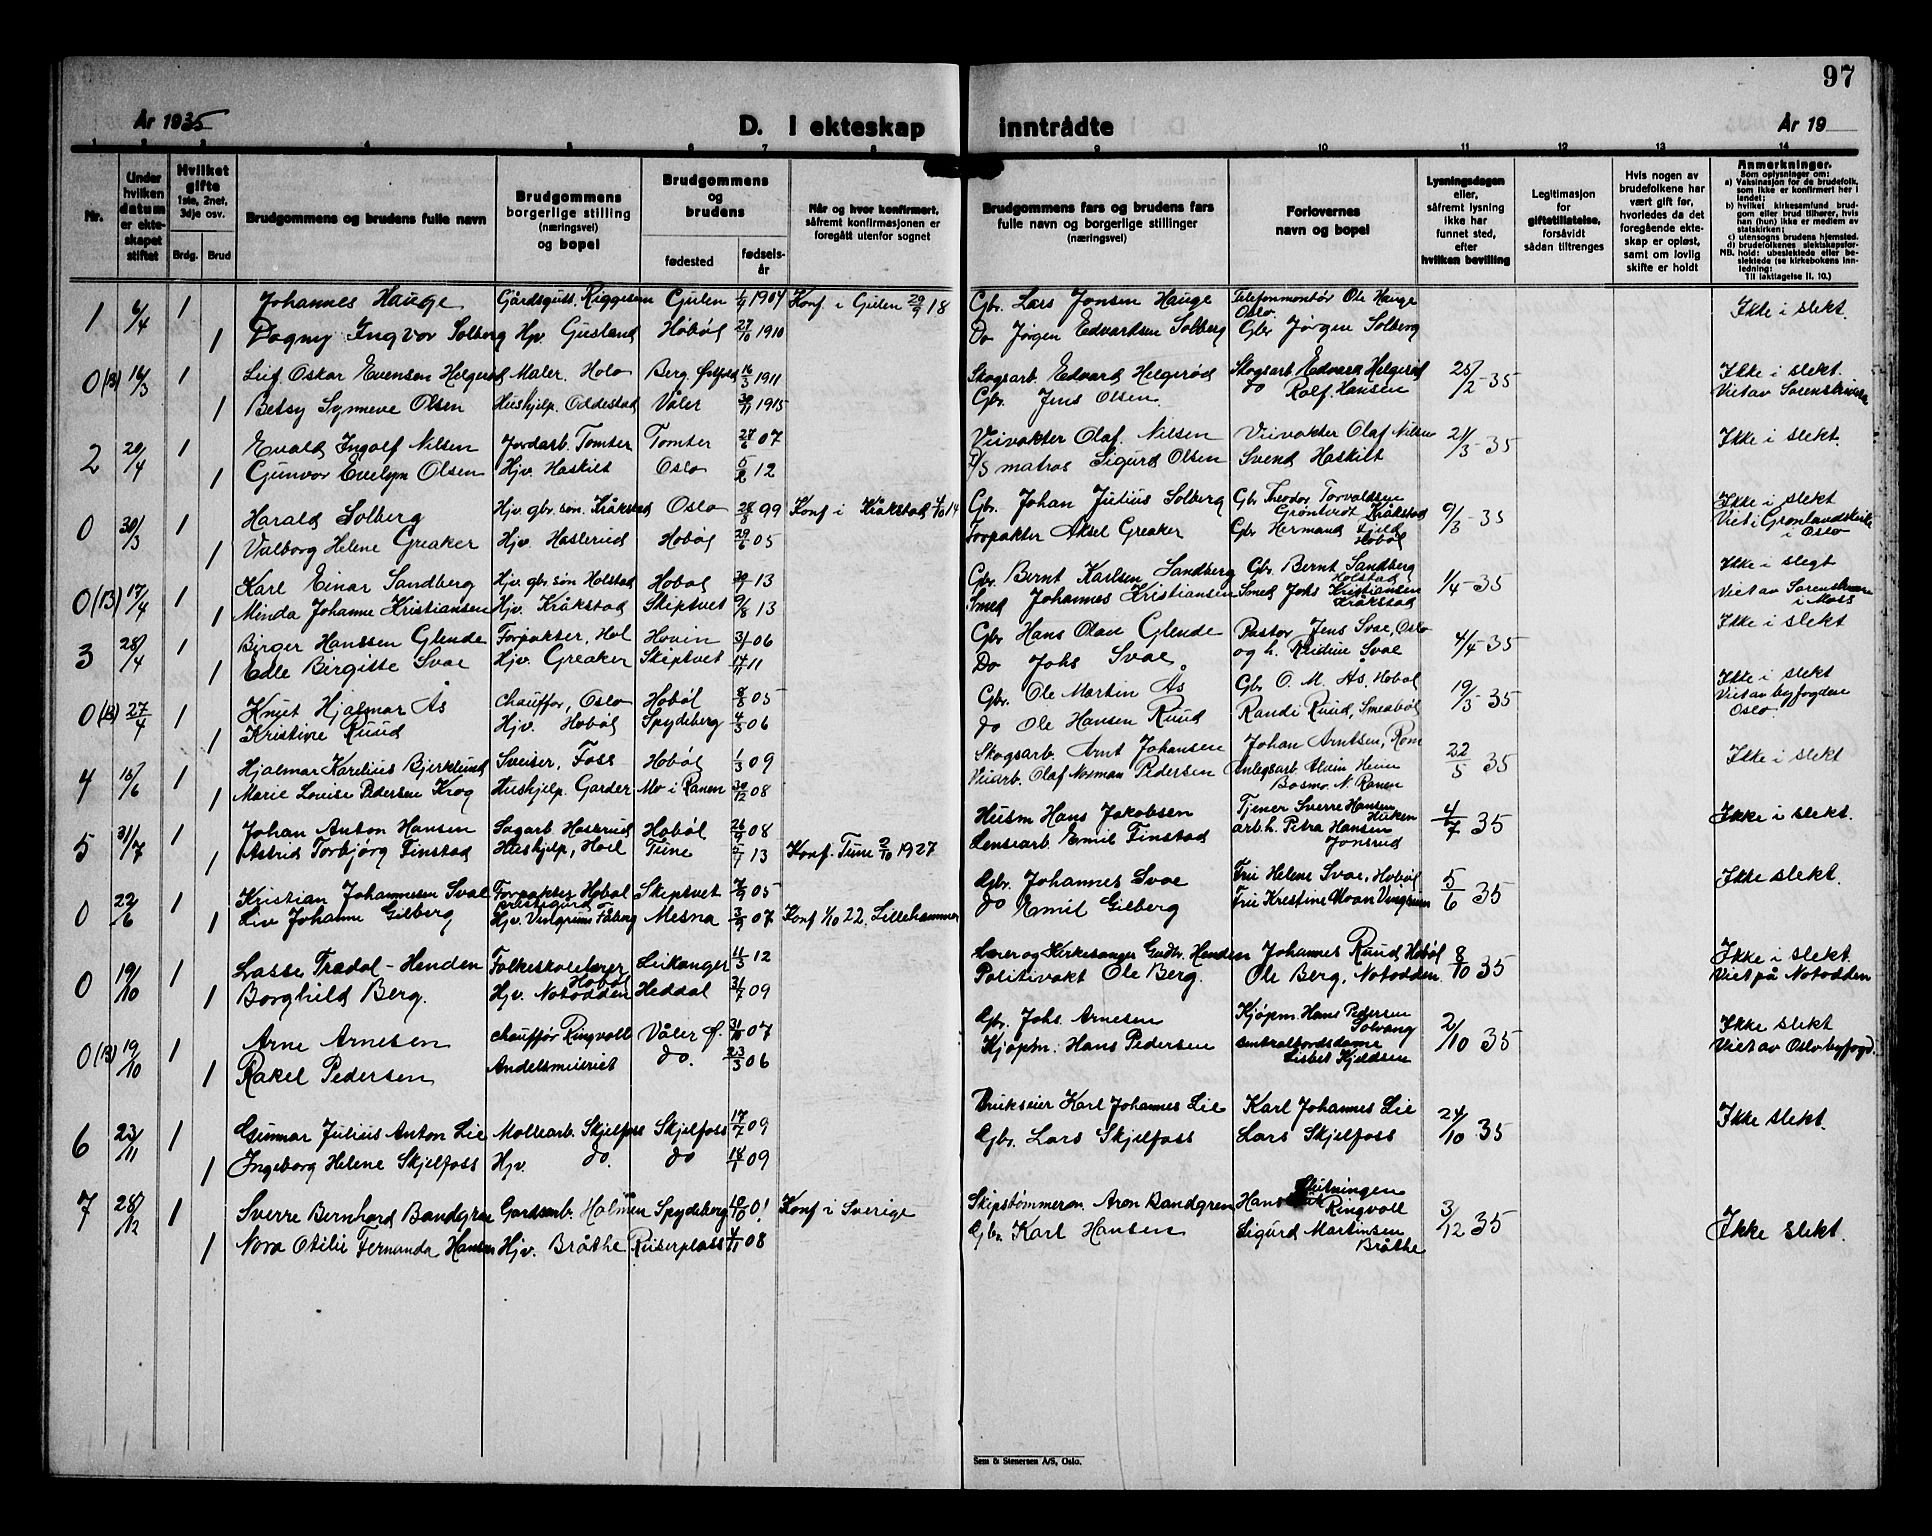 97
År 1935
D. I ekteskap inntrådte
År 19
1 2 3 4 5 6 7 8 9 10 11 12 13 14
Nr.
Under hvilken datum er ekteskapet stiftet
Hvilket gifte 1ste, 2net, 3dje osv.
Brdg. Brud
Brudgommens og brudens fulle navn
Brudgommens borgerlige stilling (næringsvei) og bopel
Brudgommens og brudens
fødested
fødselsår
Når og hvor konfirmert, såfremt konfirmasjonen er foregått utenfor sognet
Brudgommens fars og brudens fars fulle navn og borgerlige stillinger (næringsvei)
Forlovernes navn og bopel
Lysningsdagen eller, såfremt lysning ikke har funnet sted, efter hvilken bevilling
Legitimasjon for giftetillatelse, forsåvidt sådan tiltrenges
Hvis nogen av brudefolkene har vært gift før, hvorledes da det foregående ekteskap er opløst, samt om lovlig skifte er holdt
Anmerkninger.
Som oplysninger om:
a) Vaksinasjon for de brudefolk, som ikke er konfirmert her i landet;
b) hvilket kirkesamfund brudgom eller brud tilhører, hvis han (hun) ikke er medlem av statskirken;
c) utensogns brudens hjemsted.
d) brudefolkenes slektskapsforhold: ubeslektede eller beslektede (se kirkebokens innledning:
NB.
Til iakttagelse II. 10.)
1 6/4 1 Johannes Hauge Gårdsgutt. Riggesem Gulen 1904 Konf i Gulen 29/9 18 Gbr. Lars Jonsen Hauge Telefonmontör Ole Hauge Oslo. Ikke i slekt.
1 Dagny Ingvor Solberg Hjv. Gusland Høbøl 27/10 1910 Do Jørgen Edvardsen Solberg Gbr Jørgen Solberg
0(B) 16/3 1 Leif Oskar Evensen Helgerød Maler. Holo Berg. Østfold 16/3 1911 Skogsarb. Edvard Helgerød Skogsarb Edvard Helgerød 25/2-35 Ikke i slekt.
1 Betsy Synneve Olsen Hushjelp. Oddestad Våler 30/11 1915 Gbr. Jens Olsen. do Rolf Hansen Viet av Sorenskriver
2 20/4 1 Evald Ingolf Nilsen Jordarb. Tomter Tomter 27/6 07 Veivokter Olaf. Nilsen Veivokter Olaf Nilsen 21/3-35 Ikke i slekt.
1 Gunvor Evelyn Olsen Hjv. Haskilt Oslo 5/2 12 D/S matros Sigurd Olsen Svend Haskilt
0 30/3 1 Harald Solberg Hjv gbr. søn. Kråkstad Oslo 28/8 99 Konf i Kråkstad 4/10 14 Gbr. Johan Julius Solberg Gbr Theodor Torvaldsen Grøntvedt Kråkstad 9/3-35 Ikke i slekt
1 Valborg Helene Greaker Hjv. Haslerud Hobøl 29/6 05 Forpakter Aksel Greaker Gbr Hermand Fjeld Hobøl Viet i Grønlandskirke i Oslo
0(13) 17/4 1 Karl Einar Sandberg Hjv. gbr søn Holstad Hobøl 13 Gbr. Bernt Karlsen Sandberg Gbr. Bernt Sandberg Holstad 1/4-35 Ikke i slegt
1 Minda Johanne Kristiansen Hjv. Kråkstad Skiptvet 9/8 13 Smed Johannes Kristiansen Smed Johs Kristiansen Kråkstad Viet av Sorenskriver i Moss
3 28/4 1 Birger Hanssen Glende Forpakter, Hol Hovin 06 Gbr Hans Olav Glende Pastor Jens Svae, Oslo 4/4-35 Ikke i slekt
1 Edle Birgitte Svae Hjv. Greaker Skiptvet 14/11 11 Do Johs Svae og h. Kristine Svae
0(B) 27/4 1 Knut Hjalmar Ås Chauffør, Oslo Hobøl 8/8 05 Gbr. Ole Martin Ås Gbr. O. M. Ås, Hobøl 19/3-35 Ikke i slekt
1 Kristine Ruud Hjv. Hobøl Spydeberg 4/3 06 do Ole Hansen Ruud Randi Ruud, Smedbøl Viet av byfogden Oslo.
4 16/6 1 Hjalmar Karelius Bjerklund Sveiser, Foss Hobøl 1/3 09 Skogsarb. Arnt Johansen Johan Arntsen, Rom 22/5 35 Ikke i slekt
1 Marie Louise Pedersen Krog Hushjelp Garder Mo i Ranen 30/12 08 Veiarb. Olaf Norman Pedersen Anlegsarb. Alvin Heim Bosmo. N. Ranen
5 31/7 1 Johan Anton Hansen Sagarb. Haslerud Hobøl 26/9 08 Husm Hans Jakobsen Tjener Sverre Hansen Huken 4/7 35 Ikke i slekt.
1 Astrid Torbjørg Finstad Hushjelp, Hoel Tune 5/7 13 Konf. Tune 2/10 1927 Lensearb. Emil Finstad arb.h. Petra Hansen Jonsrud
0 22/6 1 Kristian Johannesen Svae Forpakter Hobøl Prestegård Skiptvet 7/9 05 Gbr. Johannes Svae Fru Helene Svae, Hobøl 5/6 35 Ikke slekt.
1 Liv Johanne Gilberg Hjv. Vingrum Fåberg Mesna 07 Konf 1/10 22. Lillehammer do Emil Gilberg Fru Kristine Moan Vingrum
0 19/10 1 Lasse Trædal-Henden Folkeskolelærer Hobøl Leikanger 11/3 12 Lærer og Kirkesanger Gudbr. Henden Johannes Ruud Hobøl 8/10 35 Ikke i slekt.
1 Borghild Berg. Hjv. Notodden Heddal 31/7 09 Politivakt Ole Berg. Ole Berg, Notodden. Viet på Notodden
0(B) 19/10 1 Arne Arnesen Chauffør Ringvoll Våler Ø. 31/10 07 Gbr. Johs. Arnesen Kjøpm. Hans Pedersen Solvang 2/10 35 Ikke slekt
1 Rakel Pedersen Andelsmeieriet do. 23/3 06 Kjøpm. Hans Pedersen Centralbordsdame Lisbet Kjeldsen Viet av Oslo byfogd.
6 23/11 1 Gunnar Julius Anton Lie Møllearb. Skjelfoss Skjelfoss 17/7 09 Brukseier Karl Johannes Lie Karl Johannes Lie 24/10 35 Ikke slekt.
1 Ingeborg Helene Skjelfoss Hjv. do. do 18/1 09 Gbr. Lars Skjelfoss Lars Skjelfoss
7 28/12 1 Sverre Bernhard Bandgren Gardsarb. Holmen Spydeberg 10/10 01 Konf i Sverige Skipstømmerm. Aron Bandgren Hans Slutningen Ringvoll 3/12 35 Ikke slekt.
1 Nora Otilie Fernanda Hansen Hjv. Bråthe Ruserplass 4/11 08 Gbr. Karl Hansen Sigurd Martinsen Bråthe
Sem & Stenersen A/S, Oslo.